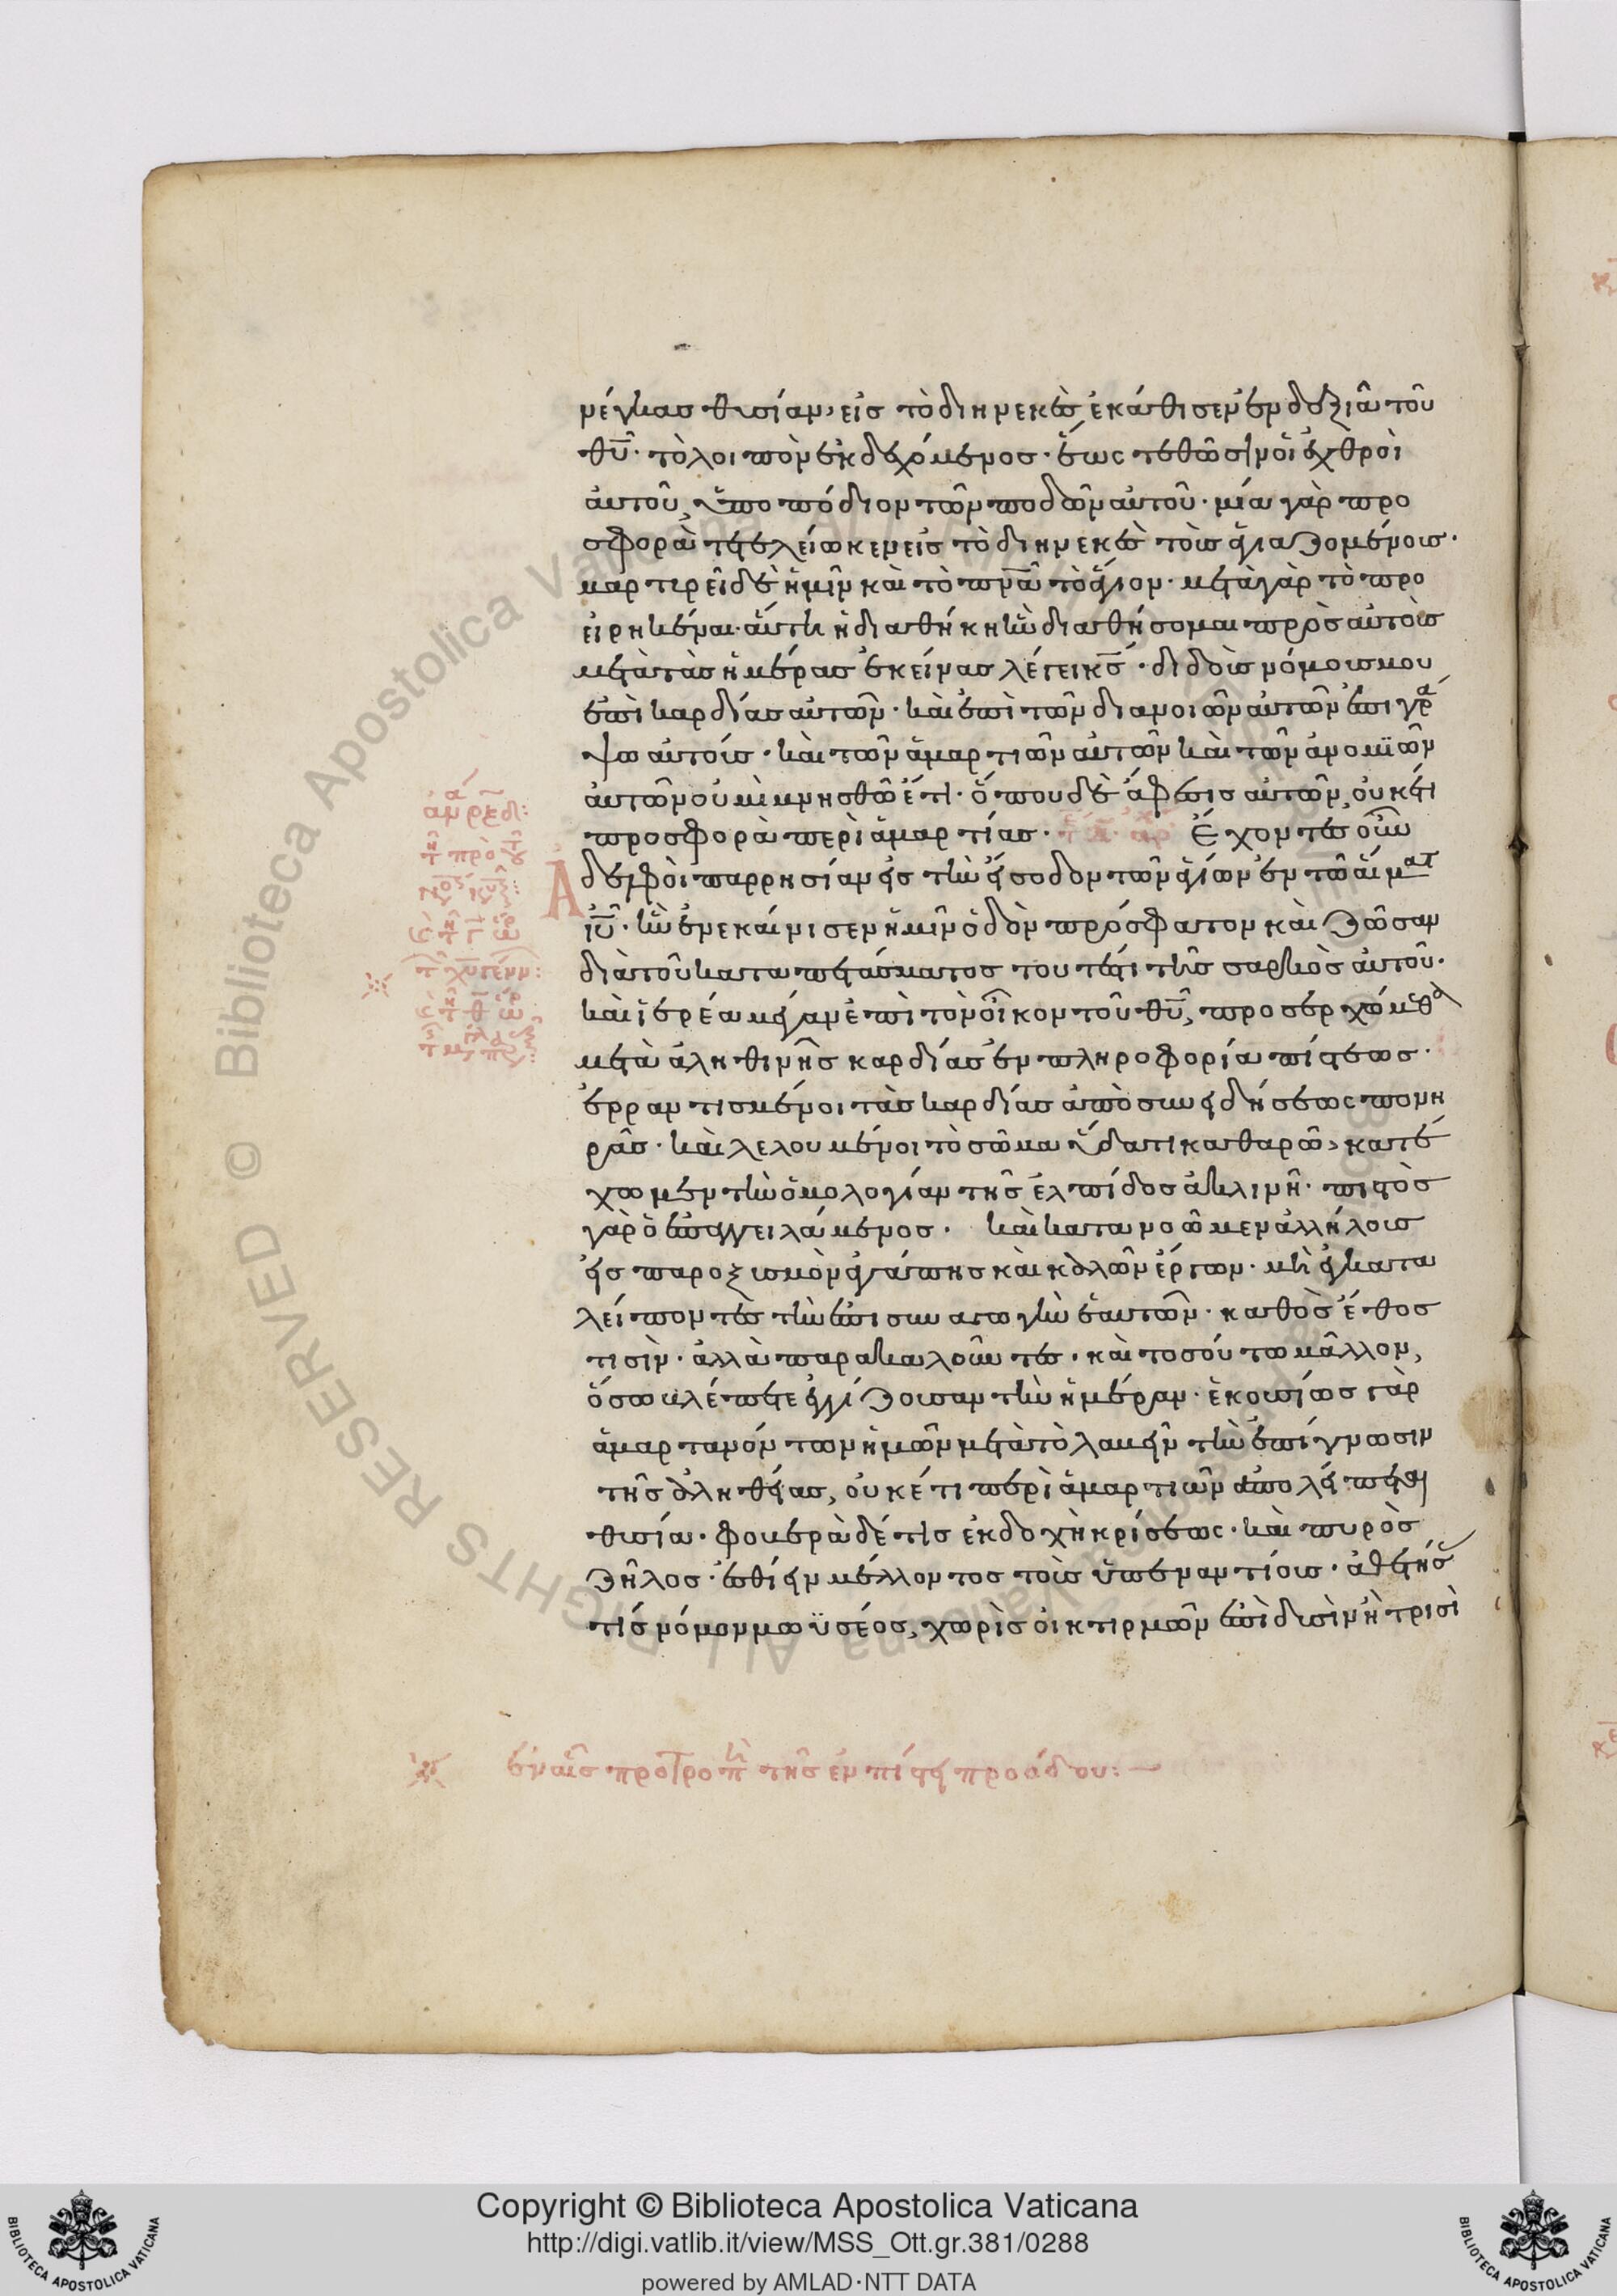 νέγκας θυσίαν, εἰς τὸ διηνεκὲς ἐκάθισεν ἐν δεξιᾶ τοῦ
θ̅υ̅· τὸ λοιπὸν ἐκδεχόμενος· ἕως τεθῶσιν οἱ ἐχθροὶ
αὐτοῦ, ὑποπόδιον τῶν ποδῶν αὐτοῦ· μία γὰρ προ
σφορὰ τετελείωκεν εἰς τὸ διηνεκὲς τοὺς ἁγιαζομένους·
μαρτυρεῖ δὲ ἡμῖν καὶ τὸ π̅ν̅α̅ τὸ ἅγιον· μετὰ γὰρ τὸ προ
ειρηκέναι· αὕτη ἡ διαθήκη ἣν διαθήσομαι πρὸς αὐτοὺς
μετὰ τὰς ἡμέρας ἐκείνας λέγει κ̅ς̅· διδοὺς νόμους μου
ἐπὶ καρδίας αὐτῶν· καὶ ἐπὶ τῶν διανοιῶν αὐτῶν ἐπιγρά
ψω αὐτούς· καὶ τῶν ἁμαρτιῶν αὐτῶν καὶ τῶν ἀνομϊῶν
αὐτῶν οὐ μὴ μνησθῶ ἔτι· ὅπου δὲ ἄφεσις αὐτῶν, οὐκέτι
προσφορὰ περὶ ἁμαρτίας· Ἔχοντες οὖν
Ἀδελφοὶ παρρησίαν εἰς τὴν εἴσοδον τῶν ἁγίων ἐν τῶ αἵματ
ι̅υ̅· ἣν ἐνεκαίνισεν ἡμῖν ὁδὸν πρόσφατον καὶ ζῶσαν
διὰ τοῦ καταπετάσματος τουτέστι τῆς σαρκὸς αὐτοῦ·
καὶ ἱερέα μέγαν ἐπὶ τὸν οἶκον τοῦ θ̅υ̅, προσερχώμεθα
μετὰ ἀληθινῆς καρδίας ἐν πληροφορία πίστεως·
ἐρραντισμένοι τὰς καρδίας ἀπὸ συνειδήσεως πονη
ρᾶς· καὶ λελουμένοι τὸ σῶμα ὕδατι καθαρῶ, κατέ
χωμεν τὴν ὁμολογίαν τῆς ἐλπίδος ἀκλινῆ· πιστὸς
γὰρ ὁ ἐπαγγειλάμενος· καὶ κατανοῶμεν ἀλλήλους
εἰς παροξυσμὸν ἀγάπης καὶ καλῶν ἔργων· μὴ ἐγκατα
λείποντες τὴν ἐπισυναγωγὴν ἑαυτῶν· καθὸς ἔθος
τισὶν· ἀλλὰ παρακαλοῦντες· καὶ τοσούτω μᾶλλον,
ὅσω βλέπετε ἐγγίζουσαν τὴν ἡμέραν· ἑκουσίως γὰρ
ἁμαρτανόντων ἡμῶν μετὰ τὸ λαβεῖν τὴν ἐπίγνωσιν
τῆς ἀληθείας, οὐκέτι περὶ ἁμαρτιῶν ἀπολείπεται
θυσία· φοβερὰ δέ τις ἐκδοχὴ κρίσεως· καὶ πυρὸς
ζῆλος· ἐσθίειν μέλλοντος τοὺς ὑπεναντίους· ἀθετήσ
τίς νόμον μωϋσέος, χωρὶς οἰκτιρμῶν ἐπὶ δυσὶν ἢ τρισὶ
ἐν αἷς προτροπὴ τῆς ἐν πίστει προόδου:—
Copyright © Biblioteca Apostolica Vaticana
http://digi.vatlib.it/view/MSS_Ott.gr.381/0288
powered by AMLAD·NTT DATA